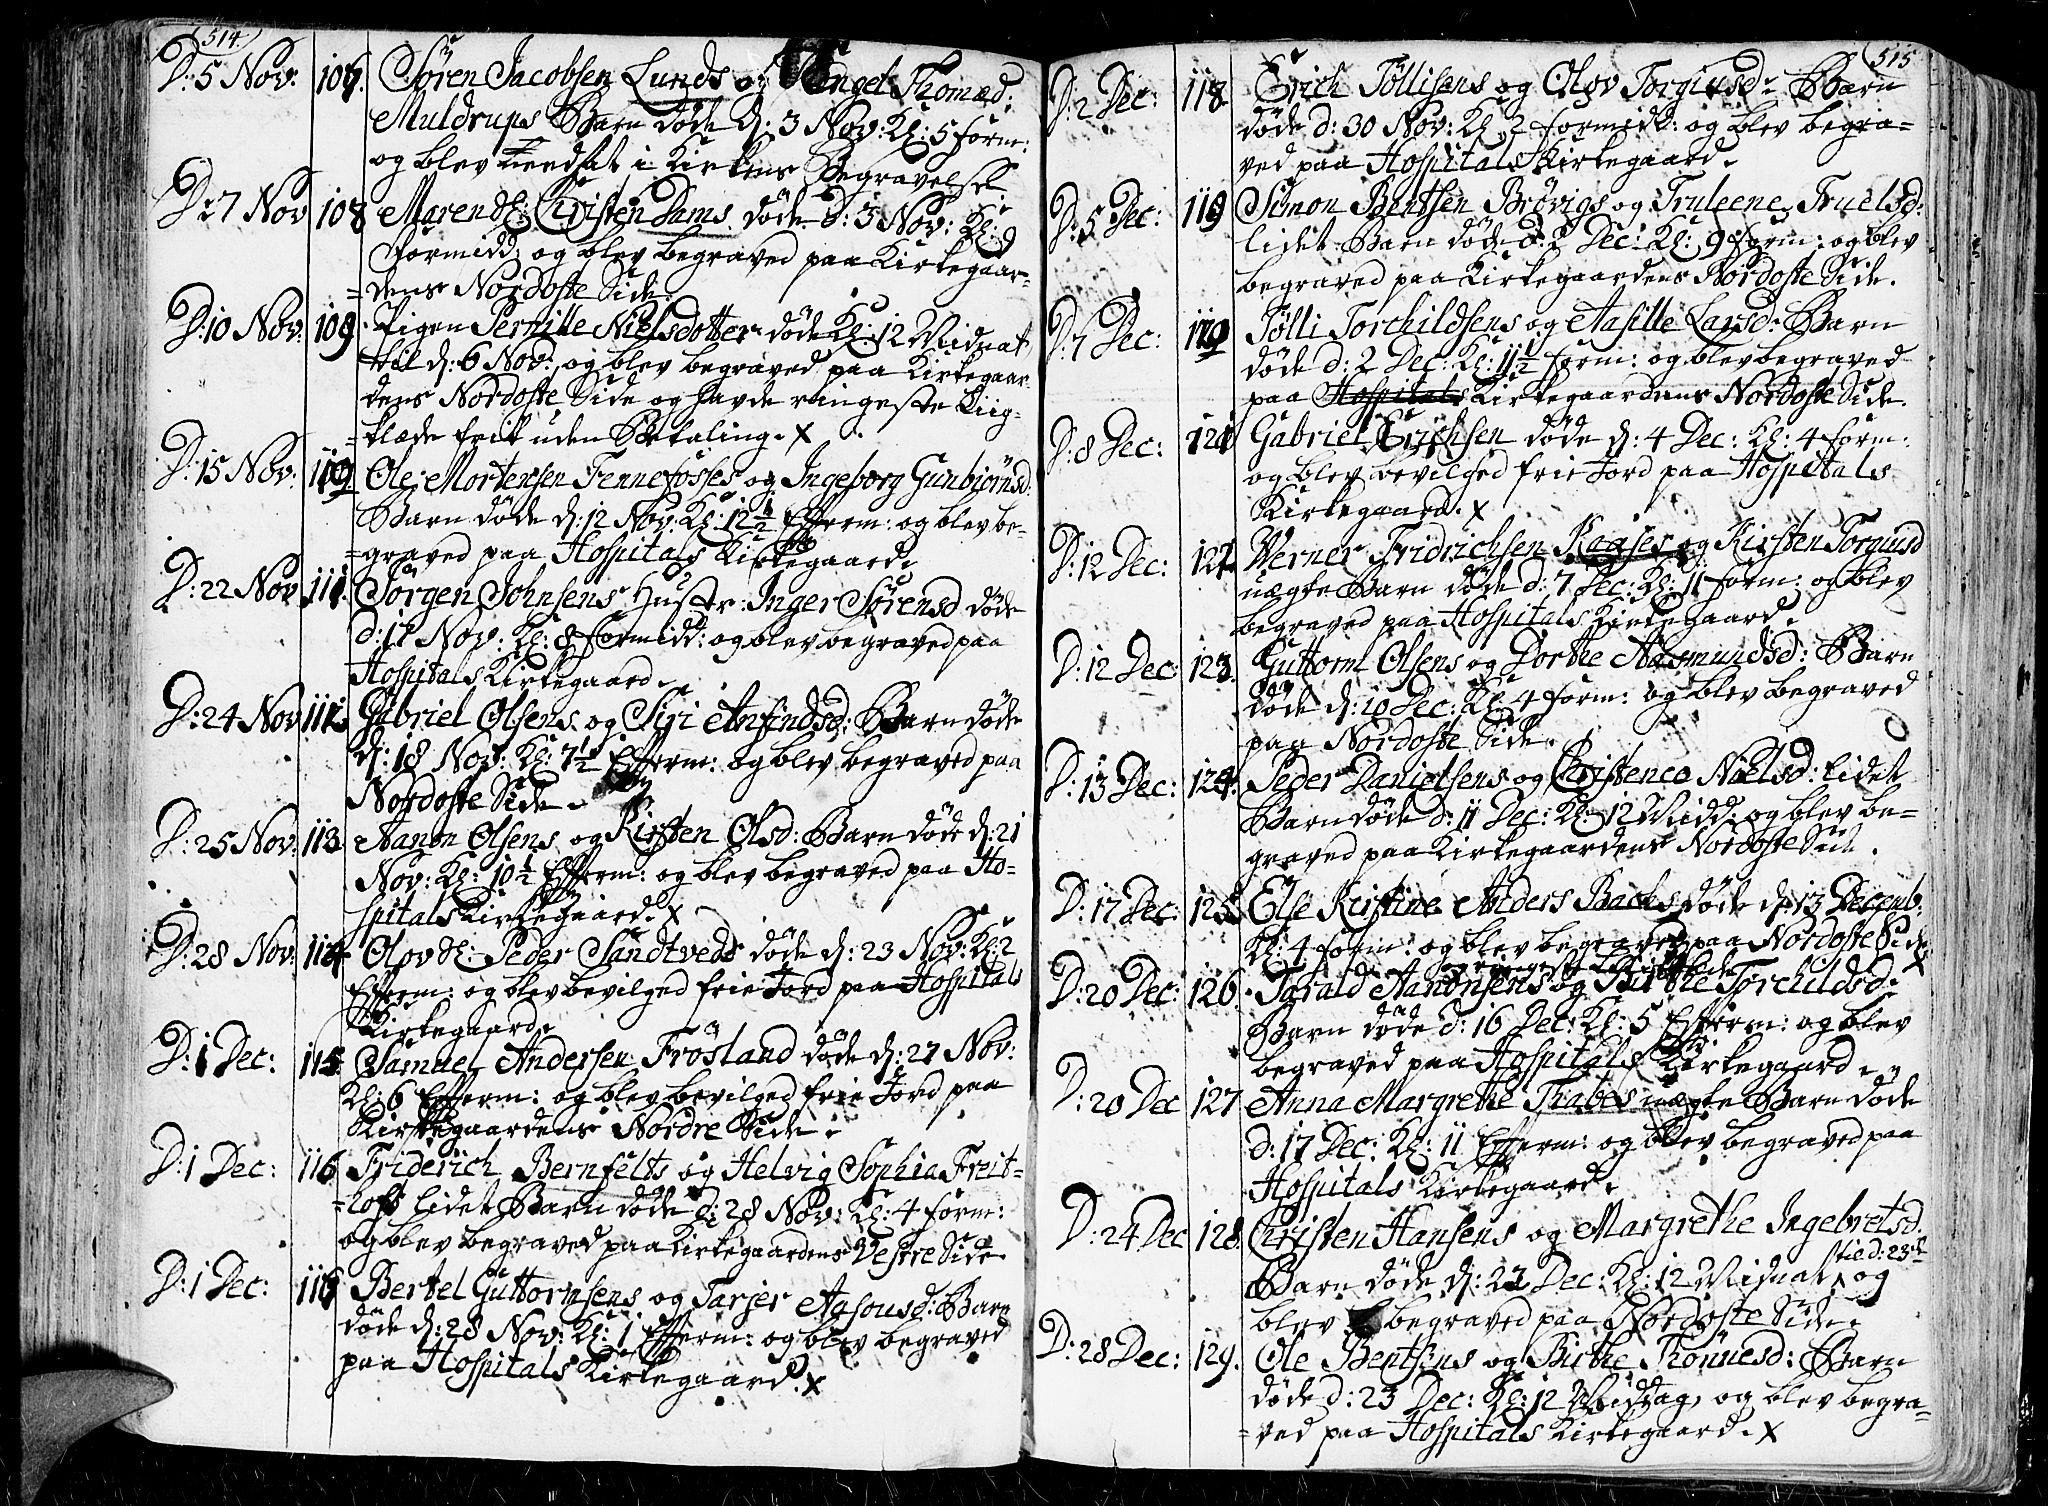 514.
D: 5 Nov: 106. Søren Jacobsen Lunds og Engel Thomæd:
Muldrups Barn døde d: 3 Nov: Kl: 5 form:
og blev hendsat i Kirkens Begravelse.
D: 7 Nov 108 Maren Sl: Christen Dams døde d: 3 Nov: Kl: 9
Formidd: og blev begraved paa Kirkegaar-
=dens Nordoste Side.
D: 10 Nov: 109 Pigen Pernille Nielsdotter døde Kl: 12 Midnat
til d: 6 Nov: og blev begraved paa Kirkegaar
dens Nordoste Side og havde ringeste Liig-
=klæde frik uden Betaling. X
D: 15 Nov: 110 Ole Mortensen Fennefosses og Ingeborg Gunbiørnsd:
Barn døde d: 12 Nov: Kl: 12 1/2 Efterm: og blev be-
=graved paa Hospitals Kirkegaard.
D: 22 Nov 111. Jørgen Johnsens Hustr: Inger Sørensd døde
d: 17 Nov: Kl: 8 formidd: og blev begraved paa
Hospitals Kirkegaard.
D: 24 Nov 112 Gabriel Olsens og Siri Anfindsd: Barn døde
d: 18 Nov: Kl: 7 1/2 Efterm: og blev begraved paa
Nordoste Side.
D: 25 Nov: 113 Aanon Olsens og Kirsten Olsd: Barn døde d: 21
Nov: Kl: 10 1/2 Efterm: og blev begraved paa Ho-
spitals Kirkegaard. X
D: 28 Nov: 114 Olov Sl: Peder Sandtveds døde d: 23 Nov: Kl: 2
Efterm: og blev bevilged frie Jord paa Hospitals
Kirkegaard.
D: 1 Dec: 115 Samuel Andersen Frösland døde d: 27 Nov:
Kl: 6 Efterm: og blev bevilged frie Jord paa
Kirkegaardens Nordre Side.
D: 1 Dec: 116 Friderich Bernfelts og Helvig Sophia Freit-
=hofs lidet Barn døde d: 28 Nov: Kl: 4 form:
og blev begraved paa Kirkegaardens Vestre Side.
D: 1 Dec: 116 Bertel Guttormsens og Tarjer Aasousd: Barn
døde d: 28 Nov: Kl: 1 Efterm: og blev begraved
paa Hospitals Kirkegaard. X
515
D: 2 Dec: 118 Erich Tøllisens og Olov Torgiusd: Barn
døde d: 30 Nov: Kl: 2 formidd: og blev begra=
ved paa Hospitals Kirkegaard.
D: 5 Dec: 119 Simon Bentsen Brøvigs og Truleene Truelsd:
lidet Barn døde d: 2 Dec: Kl: 9 form: og blev
begraved paa Kirkegaardens Nordoste Side.
D: 7 Dec: 119 Tølli Torchildsens og Aasille Larsd: Barn
døde d: 2 Dec: Kl: 11 1/2 form: og blev begraved
paa Hospitals Kirkegaardens Nordoste Side.
D: 8 Dec: 121 Gabriel Erichsen døde d: 4 Dec: Kl: 4 form:
og blev bevilged frie Jord paa Hospitals
Kirkegaard. X
D: 12 Dec: 122. Verner Fridrichsen Kaases og Kirsten Torgiusd
uægte Barn døde d: 7 Dec: Kl: 11 form: og blev
begraved paa Hospitals Kirkegaard.
D: 12 Dec: 123. Guttorm Olsens og Dorthe Aasmundsd: Barn
døde d: 10 Dec: Kl: 4 form: og blev begraved
paa Nordoste Side.
D: 13 Dec: 124. Peder Danielsens og Christence Nielsd: lidet
Barn døde d: 11 Dec: Kl: 12 Midd: og blev be=
graved paa Kirkegaardens Nordoste Side.
D: 17 Dec: 125 Else Kirstine Anders Backs døde d: 13 Decemb:
Kl: 4 form: og blev begraved paa Nordoste Side
X
D: 20 Dec: 126. Tarald Aanonsens og Birthe Torchildsd:
Barn døde d: 16 Dec: Kl: 5 Efterm: og blev
begraved paa Hospitals Kirkegaard.
D: 20 Dec 127 Anna Margrethe Thabes uægte Barn døde
d: 17 Dec: Kl: 11 Efterm: og blev begraved paa
Hospitals Kirkegaard.
D: 24 Dec 128. Christen Hansens og Margrethe Ingebretsd.
til d: 23de
Barn døde d: 22 Dec: Kl: 12 Midnat, og
blev begraved paa Nordoste Side.
D: 28 Dec: 129. Ole Bentsens og Birthe Thönnesd: Barn
døde d: 23 Dec: Kl: 12 Middag, og blev begra=
=ved paa Hospitals Kirkegaard. X